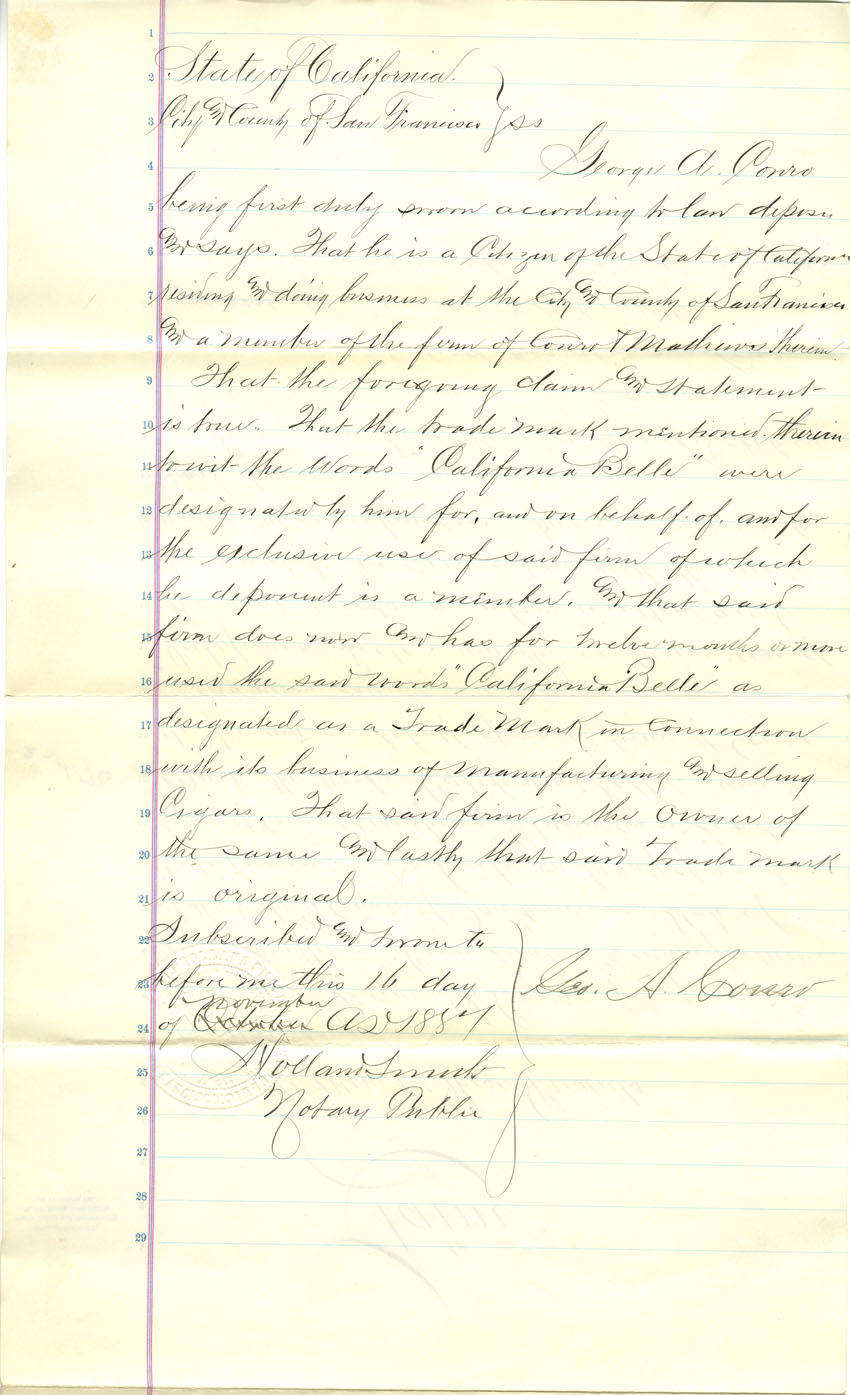 1
2 State of California.
3 City and County of San Francisco } ss
4 George A. Conro
5 being first duly sworn according to law deposes
6 and says. That he is a Citizen of the State of California
7 residing and doing business at the City and County of San Francisco
8 and a member of the firm of Conro & Mathews therein.
9 That the foregoing claim and statement
10 is true. That the trade mark mentioned therein
11 to wit the Words "California Belle" were
12 designated by him for, and on behalf of, and for
13 the exclusive use of said firm of which
14 he deponent is a member. and that said
15 firm does now and has for twelve months or more
16 used the said words "California Belle" as
17 designated as a Trade Mark in Connection
18 with its business of Manufacturing and selling
19 Cigars. That said firm is the Owner of
20 the same and lastly that said Trade Mark
21 is original.
22 Subscribed and sworn to
23 before me this 16 day
Geo. A. Conro
November
24 of October AD 1887
25 Holland Smith
26 Notary Public
27
28
29